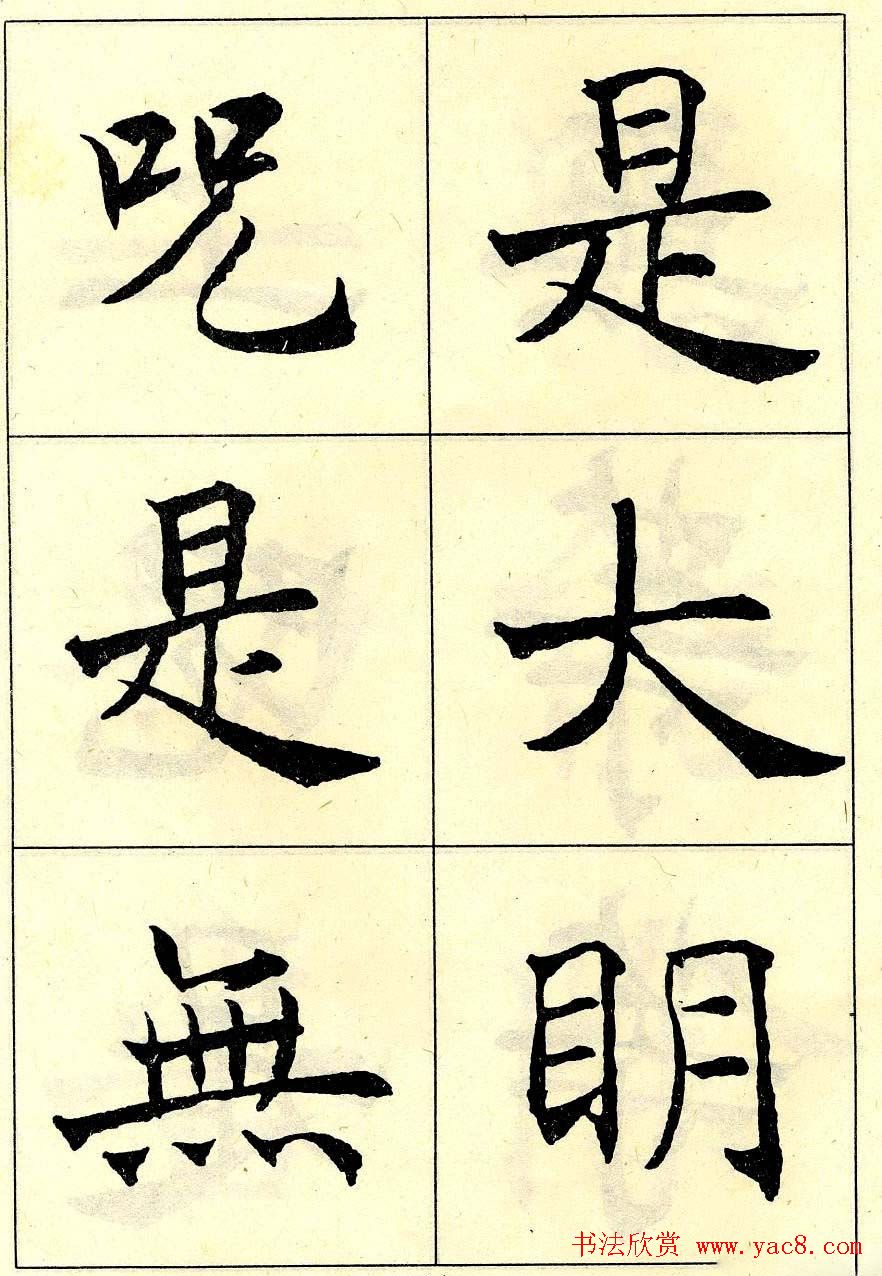 是大明
咒是無
书法欣赏 www.yac8.com